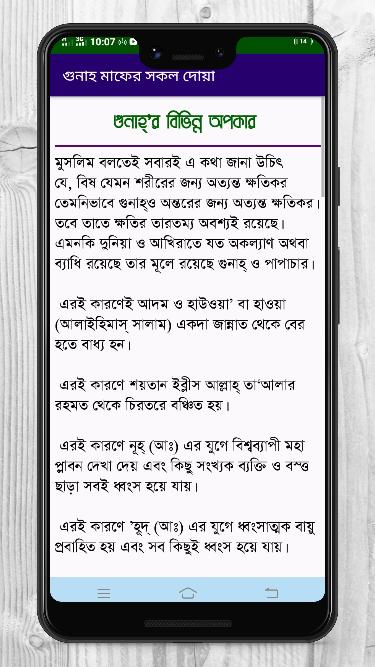 3G 10:07
14
গুনাহ মাফের সকল দোয়া
গুনাহ্'র বিভিন্ন অপকার
মুসলিম বলতেই সবারই এ কথা জানা উচিৎ
যে, বিষ যেমন শরীরের জন্য অত্যন্ত ক্ষতিকর
তেমনিভাবে গুনাহ্ও অন্তরের জন্য অত্যন্ত ক্ষতিকর।
তবে তাতে ক্ষতির তারতম্য অবশ্যই রয়েছে।
এমনকি দুনিয়া ও আখিরাতে যত অকল্যাণ অথবা
ব্যাধি রয়েছে তার মূলে রয়েছে গুনাহ্ ও পাপাচার।
এরই কারণেই আদম ও হাউওয়া' বা হাওয়া
(আলাইহিমাস্ সালাম) একদা জান্নাত থেকে বের
হতে বাধ্য হন।
এরই কারণে শয়তান ইব্লীস আল্লাহ্ তা'আলার
রহমত থেকে চিরতরে বঞ্চিত হয়।
এরই কারণে নূহ্ (আঃ) এর যুগে বিশ্বব্যাপী মহা
প্লাবন দেখা দেয় এবং কিছু সংখ্যক ব্যক্তি ও বস্তু
ছাড়া সবই ধ্বংস হয়ে যায়।
এরই কারণে 'হূদ্ (আঃ) এর যুগে ধ্বংসাত্মক বায়ু
প্রবাহিত হয় এবং সব কিছুই ধ্বংস হয়ে যায়।